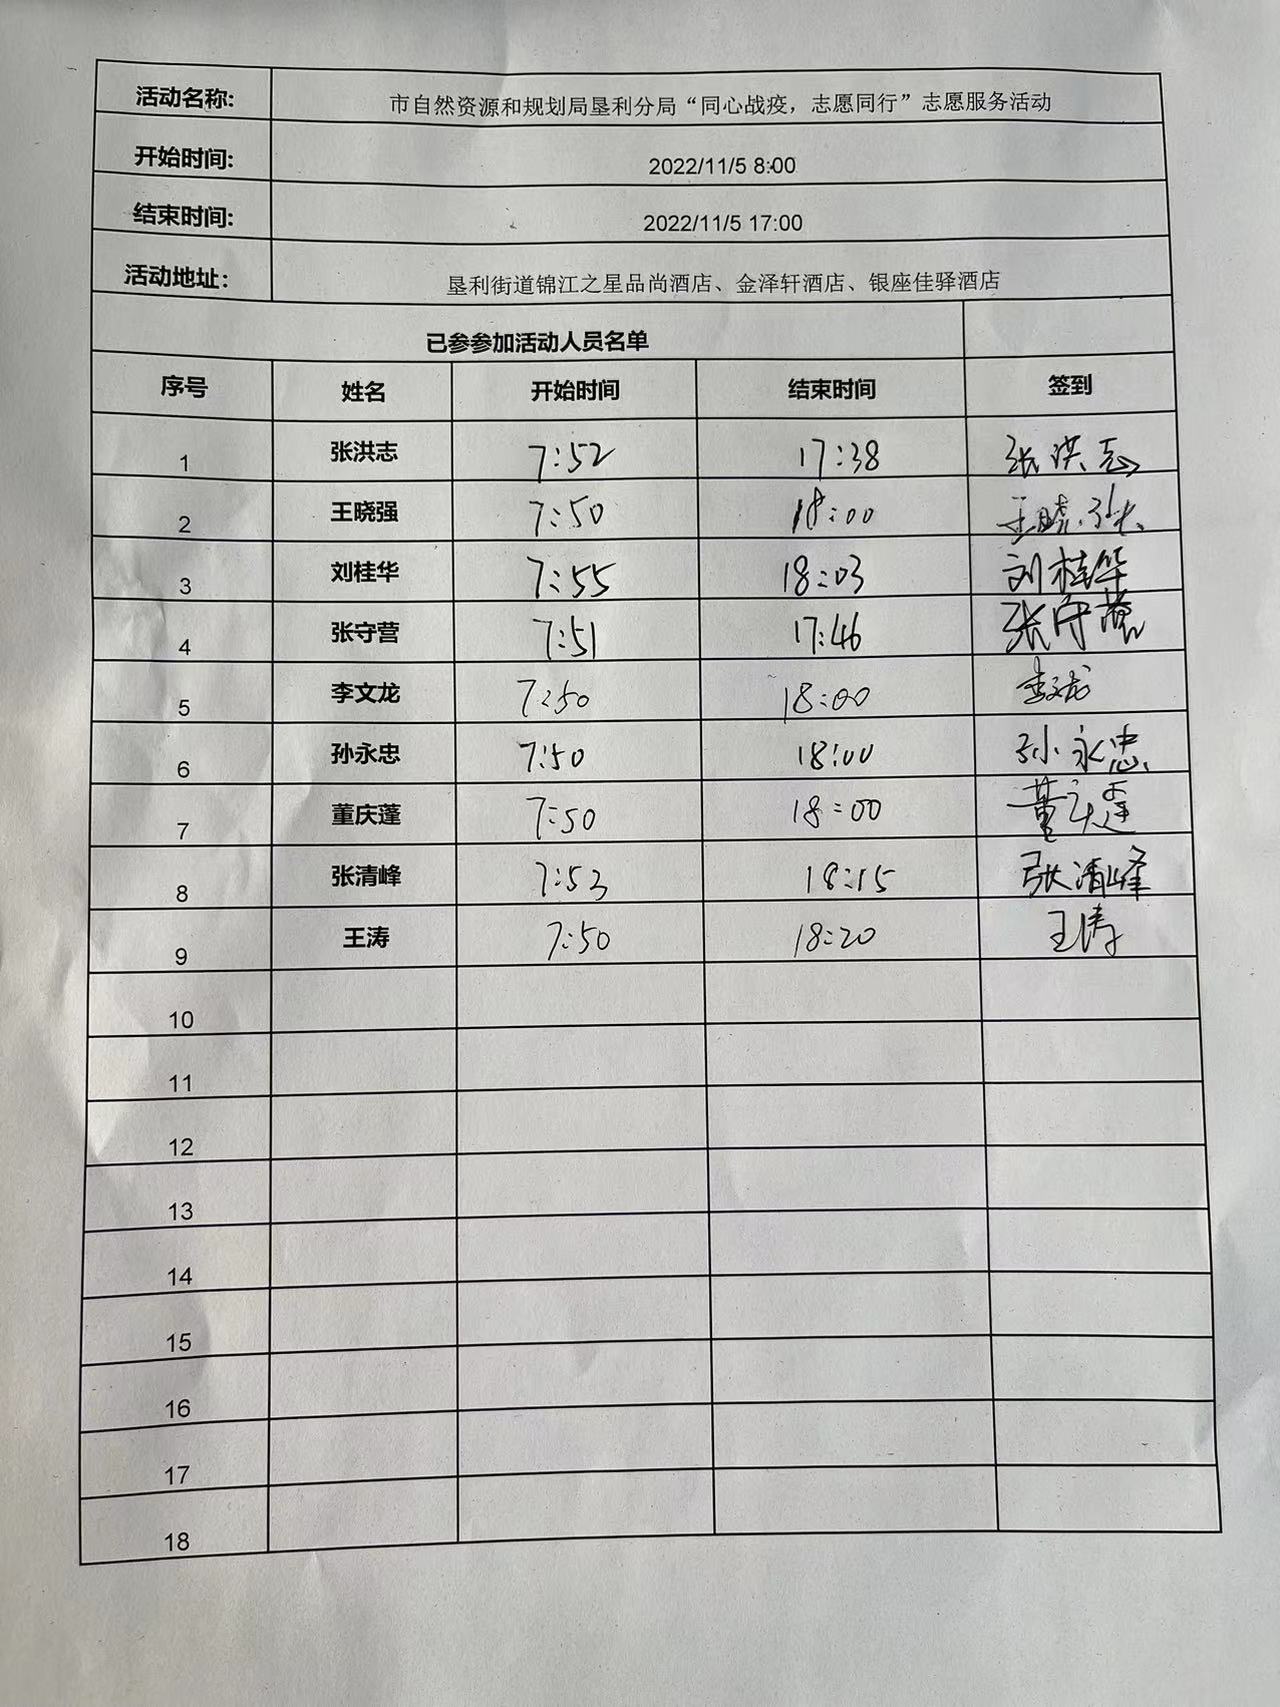 活动名称: 市自然资源和规划局垦利分局“同心战疫，志愿同行”志愿服务活动
开始时间: 2022/11/5 8:00
结束时间: 2022/11/5 17:00
活动地址: 垦利街道锦江之星品尚酒店、金泽轩酒店、银座佳驿酒店
已参参加活动人员名单
序号 姓名 开始时间 结束时间 签到
1 张洪志 7:52 17:38 张洪志
2 王晓强 7:50 18:00 王晓强
3 刘桂华 7:55 18:03 刘桂华
4 张守营 7:51 17:46 张守营
5 李文龙 7:50 18:00 李文龙
6 孙永忠 7:50 18:00 孙永忠
7 董庆蓬 7:50 18:00 董庆蓬
8 张清峰 7:53 18:15 张清峰
9 王涛 7:50 18:20 王涛
10
11
12
13
14
15
16
17
18